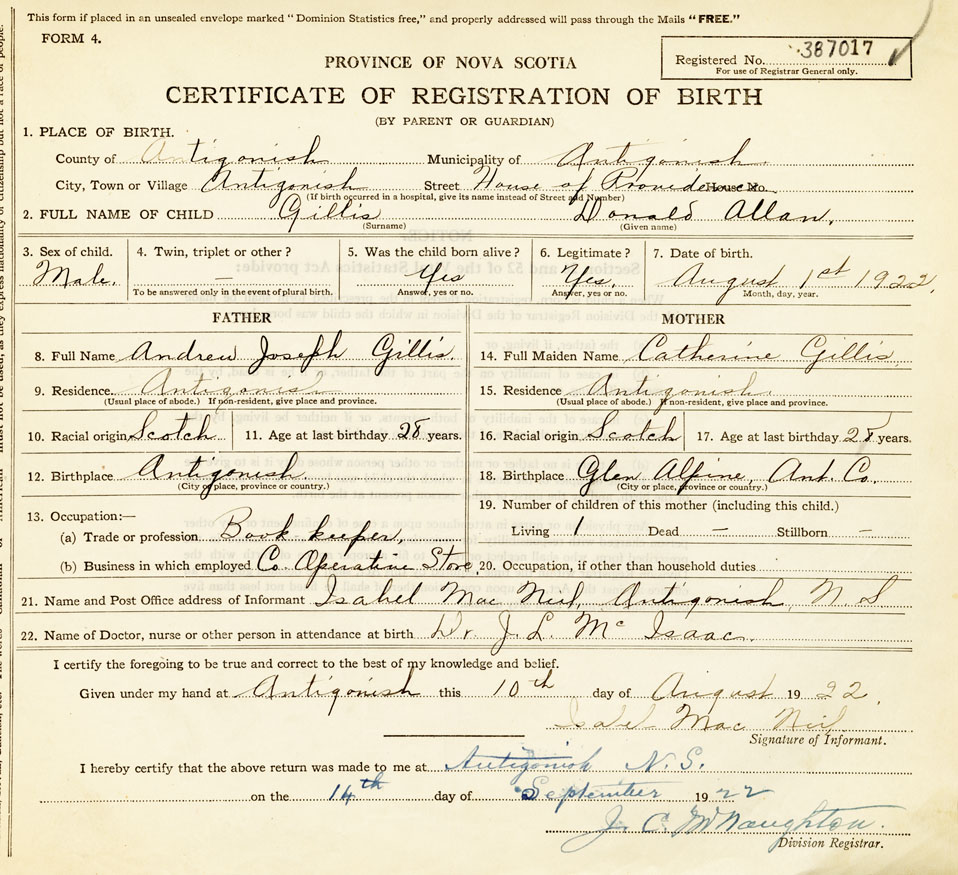 This form if placed in an unsealed envelope marked "Dominion Statistics free," and properly addressed will pass through the Mails "FREE."
FORM 4.
Registered No. 387017
For use of Registrar General only.
PROVINCE OF NOVA SCOTIA
CERTIFICATE OF REGISTRATION OF BIRTH
(BY PARENT OR GUARDIAN)
1. PLACE OF BIRTH.
County of Antigonish Municipality of Antigonish
City, Town or Village Antigonish Street House of Providence House No.
(If birth occurred in a hospital, give its name instead of Street and Number)
2. FULL NAME OF CHILD Gillis Donald Allan,
(Surname) (Given name)
3. Sex of child. 4. Twin, triplet or other? 5. Was the child born alive? 6. Legitimate? 7. Date of birth.
Male. — Yes Yes, August 1st 1922.
To be answered only in the event of plural birth. Answer, yes or no. Answer, yes or no. Month, day, year.
FATHER
8. Full Name Andrew Joseph Gillis.
9. Residence Antigonish
(Usual place of abode.) If non-resident, give place and province.
10. Racial origin Scotch 11. Age at last birthday 28 years.
12. Birthplace Antigonish.
(City or place, province or country.)
13. Occupation:—
(a) Trade or profession Book-keeper,
(b) Business in which employed Co. Operative Store,
MOTHER
14. Full Maiden Name Catherine Gillis
15. Residence Antigonish.
(Usual place of abode.) If non-resident, give place and province.
16. Racial origin Scotch 17. Age at last birthday 28 years.
18. Birthplace Glen Alpine, Ant. Co.
(City or place, province or country.)
19. Number of children of this mother (including this child.)
Living 1 Dead — Stillborn —
20. Occupation, if other than household duties
21. Name and Post Office address of Informant Isabel Mac Neil, Antigonish, N. S
22. Name of Doctor, nurse or other person in attendance at birth Dr J. L. Mc Isaac.
I certify the foregoing to be true and correct to the best of my knowledge and belief.
Given under my hand at Antigonish this 10th day of August 1922.
Isabel Mac Neil
Signature of Informant.
I hereby certify that the above return was made to me at Antigonish N.S.
on the 14th day of September 1922
J. C. McNaughton.
Division Registrar.